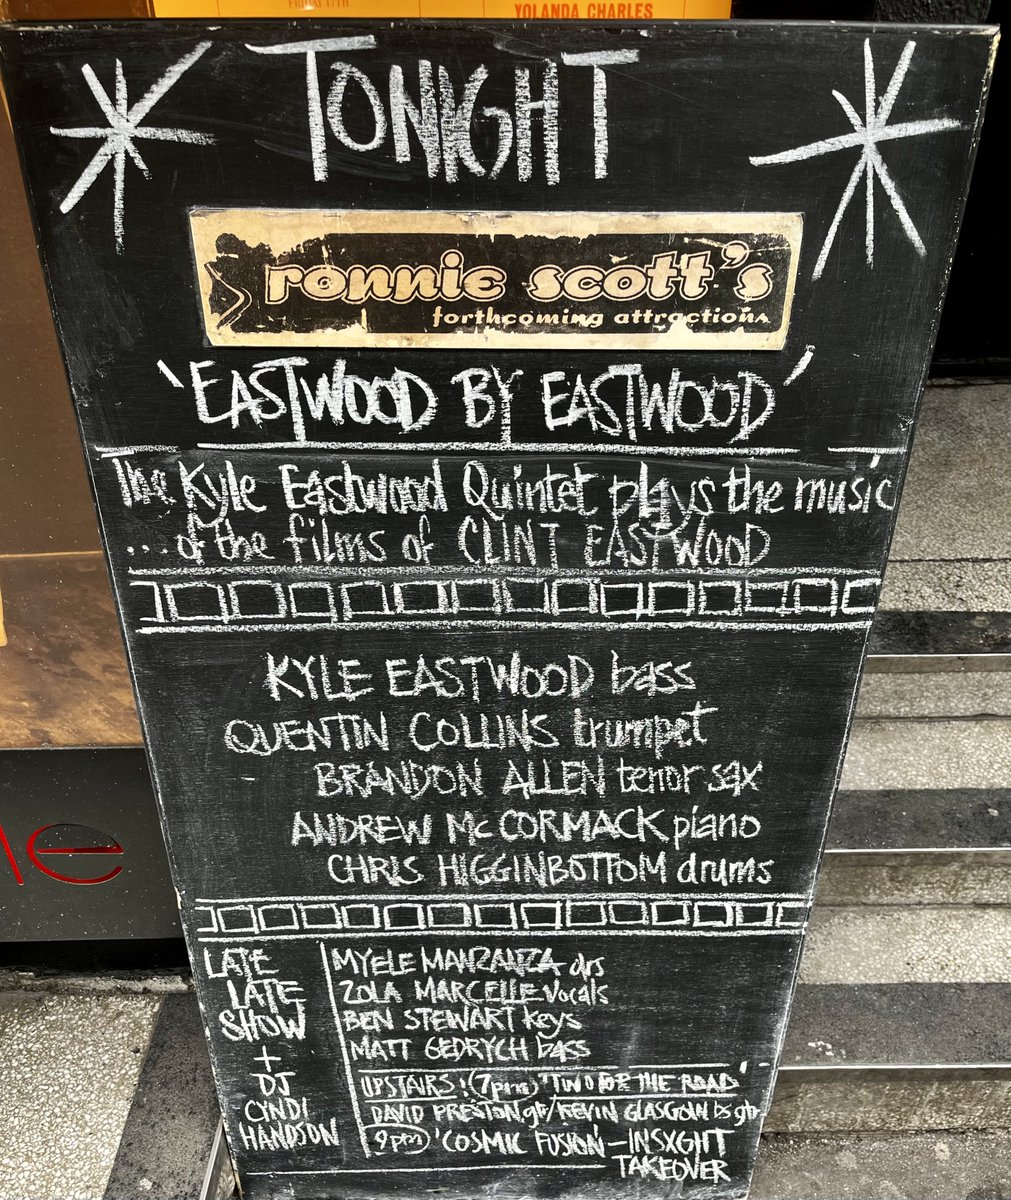 FRIDAY 17TH
YOLANDA CHARLES
TONIGHT
ronnie scott's
forthcoming attractions
'EASTWOOD BY EASTWOOD'
The Kyle Eastwood Quintet plays the music
...of the films of CLINT EASTWOOD
KYLE EASTWOOD bass
QUENTIN COLLINS trumpet
BRANDON ALLEN tenor sax
ANDREW McCORMACK piano
CHRIS HIGGINBOTTOM drums
LATE
LATE
SHOW
+
DJ
CYNDI
HANDSON
MYELE MANZANZA drs
ZOLA MARCELLE vocals
BEN STEWART keys
MATT GEDRYCH bass
UPSTAIRS: (7pm) 'TWO FOR THE ROAD'
DAVID PRESTON gtr/KEVIN GLASGOW bs gtr
9pm 'COSMIC FUSION' - INSXGHT
TAKEOVER